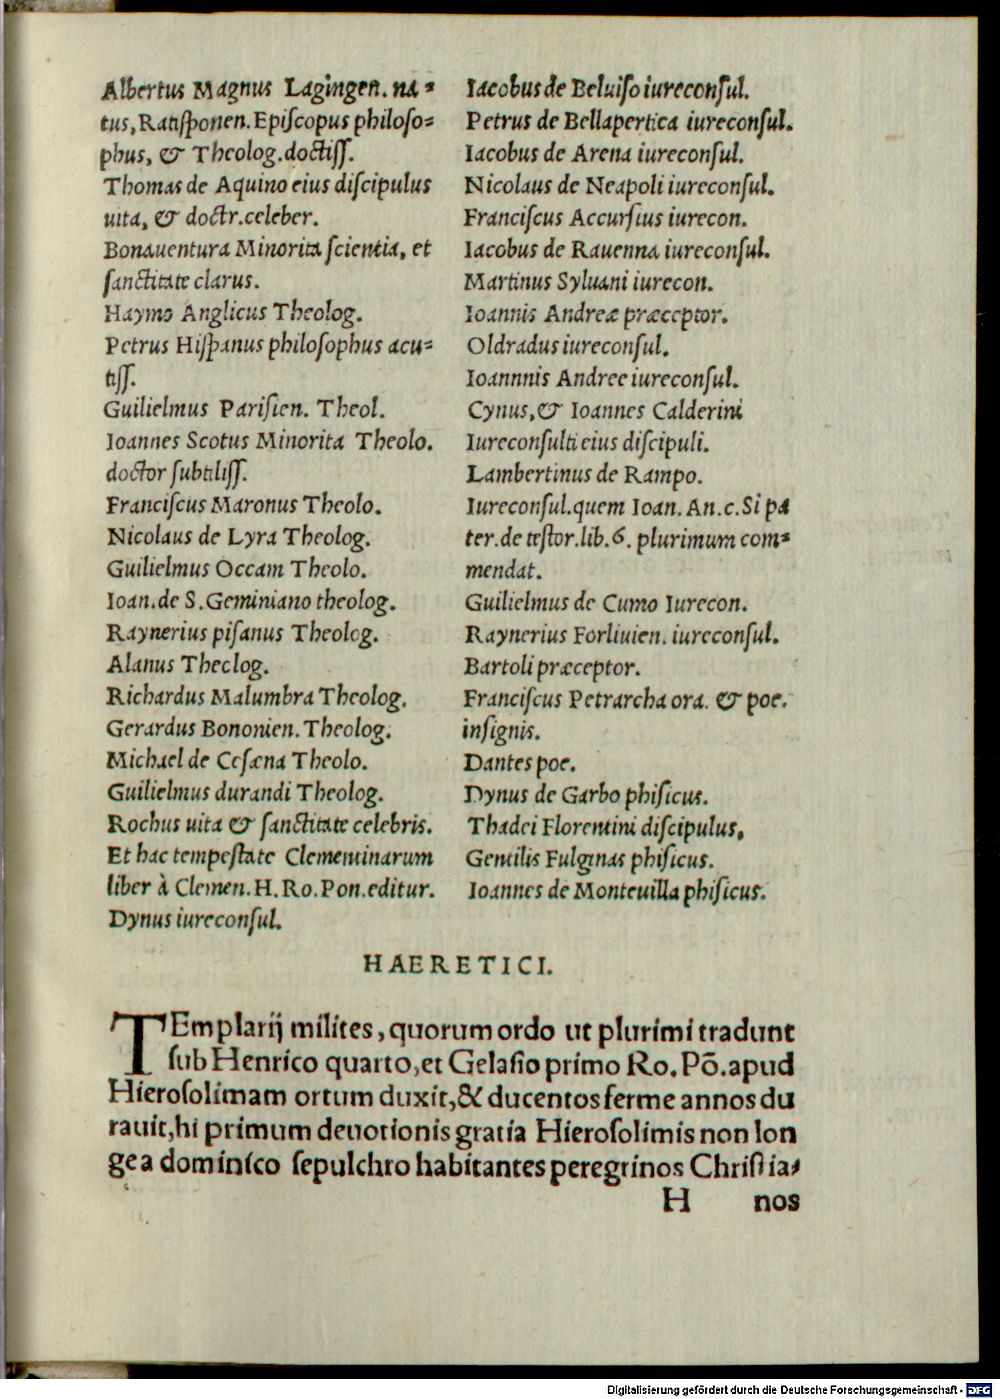 Albertus Magnus Lagingen. na⸗
tus, Ratiſponen. Epiſcopus philoſo⸗
phus, & Theolog. doctiſſ.
Thomas de Aquino eius diſcipulus
uita, & doctr. celeber.
Bonauentura Minorita ſcientia, et
ſanctitate clarus.
Haymo Anglicus Theolog.
Petrus Hiſpanus philoſophus acu⸗
tiſſ.
Guilielmus Pariſien. Theol.
Ioannes Scotus Minorita Theolo.
doctor ſubtiliſſ.
Franciſcus Maronus Theolo.
Nicolaus de Lyra Theolog.
Guilielmus Occam Theolo.
Ioan. de S. Geminiano theolog.
Raynerius piſanus Theolog.
Alanus Theolog.
Richardus Malumbra Theolog.
Gerardus Bononien. Theolog.
Michael de Ceſæna Theolo.
Guilielmus durandi Theolog.
Rochus uita & ſanctitate celebris.
Et hac tempeſtate Clementinarum
liber à Clemen. H. Ro. Pon. editur.
Dynus iureconſul.
Iacobus de Beluiſo iureconſul.
Petrus de Bellapertica iureconſul.
Iacobus de Arena iureconſul.
Nicolaus de Neapoli iureconſul.
Franciſcus Accurſius iurecon.
Iacobus de Rauenna iureconſul.
Martinus Syluani iurecon.
Ioannis Andreæ præceptor.
Oldradus iureconſul.
Ioannnis Andree iureconſul.
Cynus, & Ioannes Calderini
Iureconſulti eius diſcipuli.
Lambertinus de Rampo.
Iureconſul. quem Ioan. An. c. Si pa
ter. de teſtor. lib. 6. plurimum com⸗
mendat.
Guilielmus de Cumo Iurecon.
Raynerius Forliuien. iureconſul.
Bartoli præceptor.
Franciſcus Petrarcha ora. & poe.
inſignis.
Dantes poe.
Dynus de Garbo phiſicus.
Thadei Florentini diſcipulus,
Gentilis Fulginas phiſicus.
Ioannes de Monteuilla phiſicus.
HAERETICI.
TEmplarij milites, quorum ordo ut plurimi tradunt
ſub Henrico quarto, et Gelaſio primo Ro. Põ. apud
Hieroſolimam ortum duxit, & ducentos ferme annos du
rauit, hi primum deuotionis gratia Hieroſolimis non lon
ge a dominico ſepulchro habitantes peregrinos Chriſtia⸗
H nos
Digitalisierung gefördert durch die Deutsche Forschungsgemeinschaft - DFG